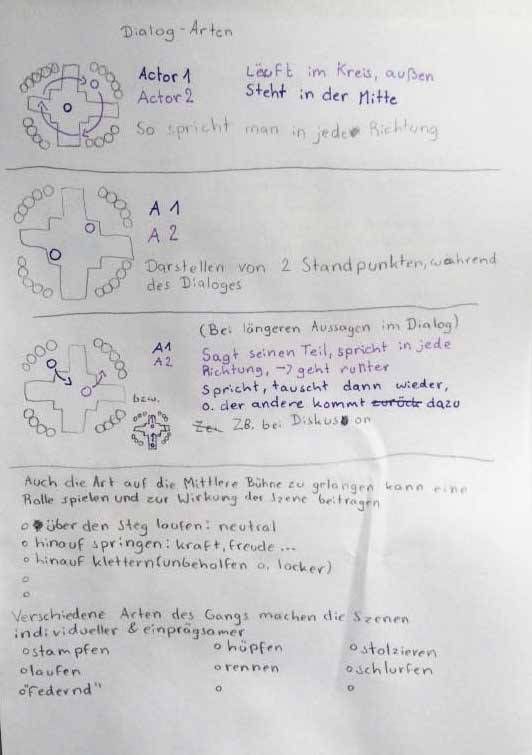 Dialog-Arten
Actor 1 Läuft im Kreis, außen
Actor 2 Steht in der Mitte
So spricht man in jede Richtung
A 1
A 2
Darstellen von 2 Standpunkten, während
des Dialoges
(Bei längeren Aussagen im Dialog)
A1 Sagt seinen Teil, spricht in jede
A2 Richtung, → geht runter
spricht, tauscht dann wieder,
o. der andere kommt zurück dazu
bzw.
ZB. bei Diskussion
Auch die Art auf die Mittlere Bühne zu gelangen kann eine
Rolle spielen und zur Wirkung der Szene beitragen
o über den Steg laufen: neutral
o hinauf springen: kraft, freude ...
o hinauf klettern (unbeholfen o. locker)
o
o
Verschiedene Arten des Gangs machen die Szenen
individueller & einprägsamer
o stampfen o hüpfen o stolzieren
o laufen o rennen o schlurfen
o "Federnd" o o